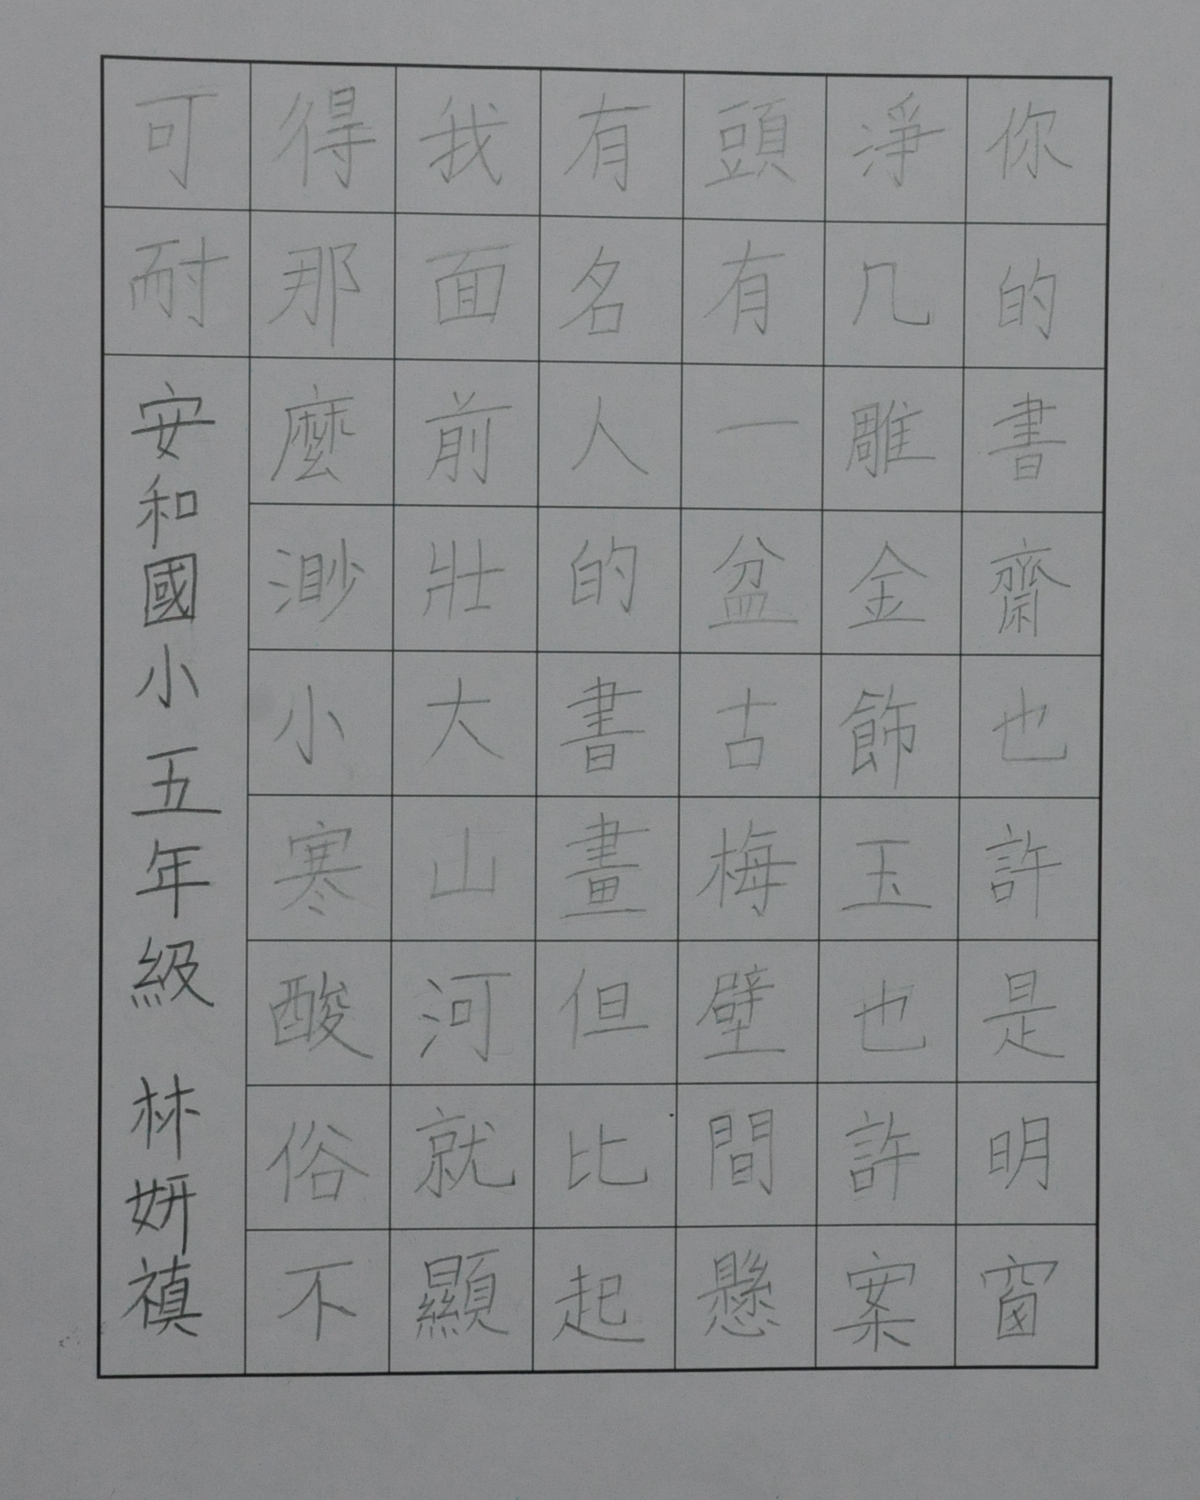 你的書齋也許是明窗
淨几雕金飾玉也許案
頭有一盆古梅壁間懸
有名人的書畫但比起
我面前壯大山河就顯
得那麼渺小寒酸俗不
可耐
安和國小五年級 林妍禛